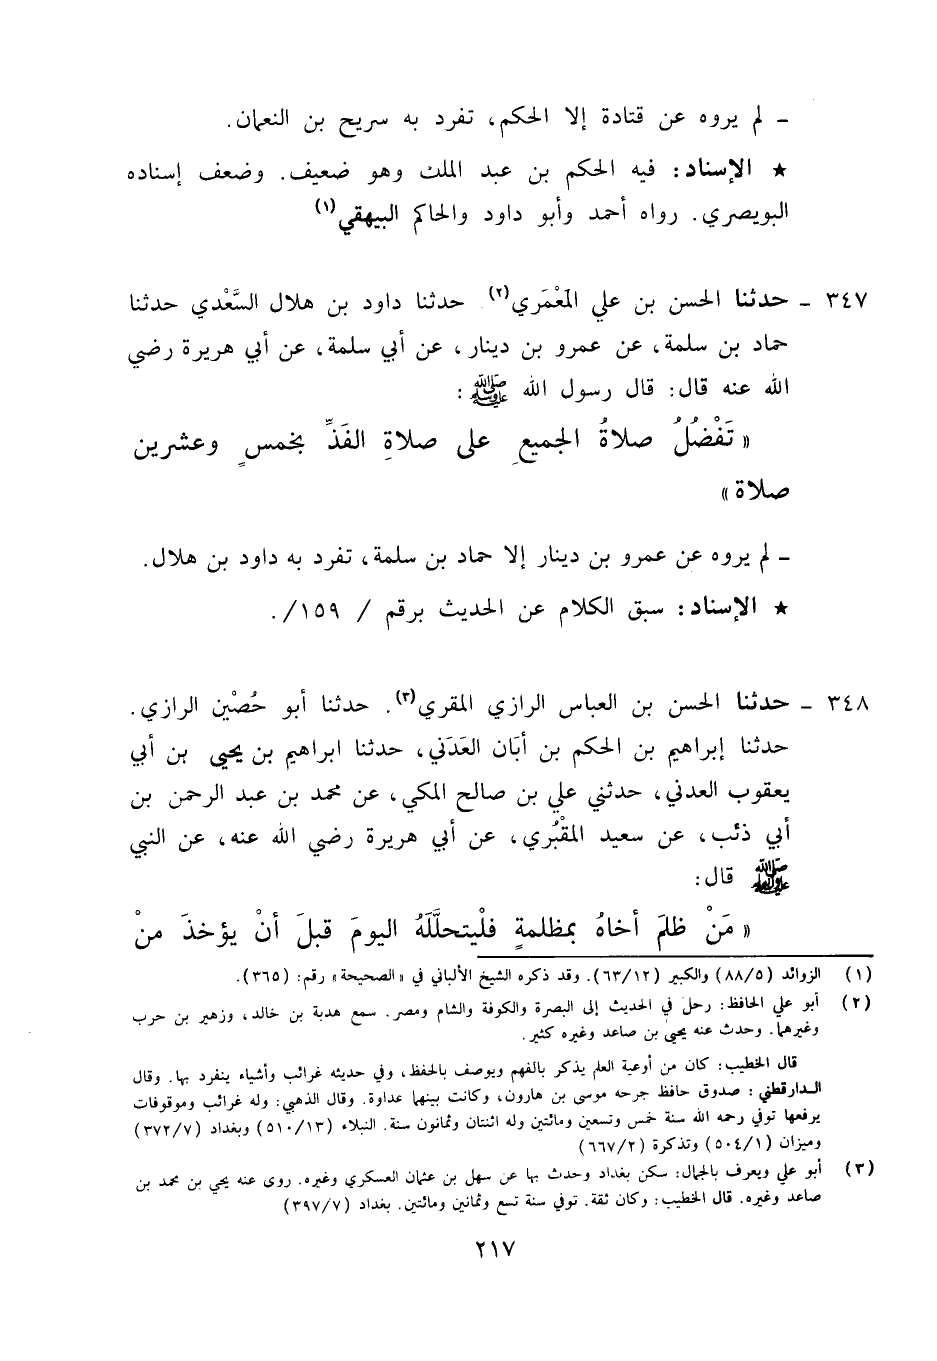 ـ لم يروه عن قتادة إلا الحكم، تفرد به سريح بن النعمان.
★ الإسناد: فيه الحكم بن عبد الملك وهو ضعيف. وضعف إسناده
البويصري. رواه أحمد وأبو داود والحاكم البيهقي(١)
٣٤٧ ـ حدثنا الحسن بن علي المَعْمَري(٢) حدثنا داود بن هلال السَّعْدي حدثنا
حماد بن سلمة، عن عمرو بن دينار، عن أبي سلمة، عن أبي هريرة رضي
الله عنه قال: قال رسول الله ﷺ:
«تَفْضُلُ صلاةُ الجميعِ على صلاةِ الفَذِّ بخمسٍ وعشرين
صلاة»
ـ لم يروه عن عمرو بن دينار إلا حماد بن سلمة، تفرد به داود بن هلال.
★ الإسناد: سبق الكلام عن الحديث برقم / ١٥٩/.
٣٤٨ ـ حدثنا الحسن بن العباس الرازي المقري(٣). حدثنا أبو حُصْين الرازي.
حدثنا إبراهيم بن الحكم بن أبَان العَدَني، حدثنا ابراهيم بن يحيى بن أبي
يعقوب العدني، حدثني علي بن صالح المكي، عن محمد بن عبد الرحمن بن
أبي ذئب، عن سعيد المقْبُري، عن أبي هريرة رضي الله عنه، عن النبي
ﷺ قال:
«مَنْ ظلمَ أخاهُ بمظلمةٍ فلْيتحلَّلَهُ اليومَ قبلَ أنْ يؤخذَ منْ
(١) الزوائد (٨٨/٥) والكبير (٦٣/١٢). وقد ذكره الشيخ الألباني في «الصحيحة» رقم: (٣٦٥).
(٢) أبو علي الحافظ: رحل في الحديث إلى البصرة والكوفة والشام ومصر. سمع هدبة بن خالد، وزهير بن حرب
وغيرهما. وحدث عنه يحيى بن صاعد وغيره كثير.
قال الخطيب: كان من أوعية العلم يذكر بالفهم ويوصف بالحفظ، وفي حديثه غرائب وأشياء ينفرد بها. وقال
الدارقطني: صدوق حافظ جرحه موسى بن هارون، وكانت بينهما عداوة. وقال الذهبي: وله غرائب وموقوفات
يرفعها توفي رحمه الله سنة خمس وتسعين ومائتين وله اثنتان وثمانون سنة. النبلاء (٥١٠/١٣) وبغداد (٣٧٢/٧)
وميزان (٥٠٤/١) وتذكرة (٦٦٧/٢)
(٣) أبو علي ويعرف بالجمال: سكن بغداد وحدث بها عن سهل بن عثمان العسكري وغيره. روى عنه يحيى بن محمد بن
صاعد وغيره. قال الخطيب: وكان ثقة. توفي سنة تسع وثمانين ومائتين. بغداد (٣٩٧/٧)
٢١٧